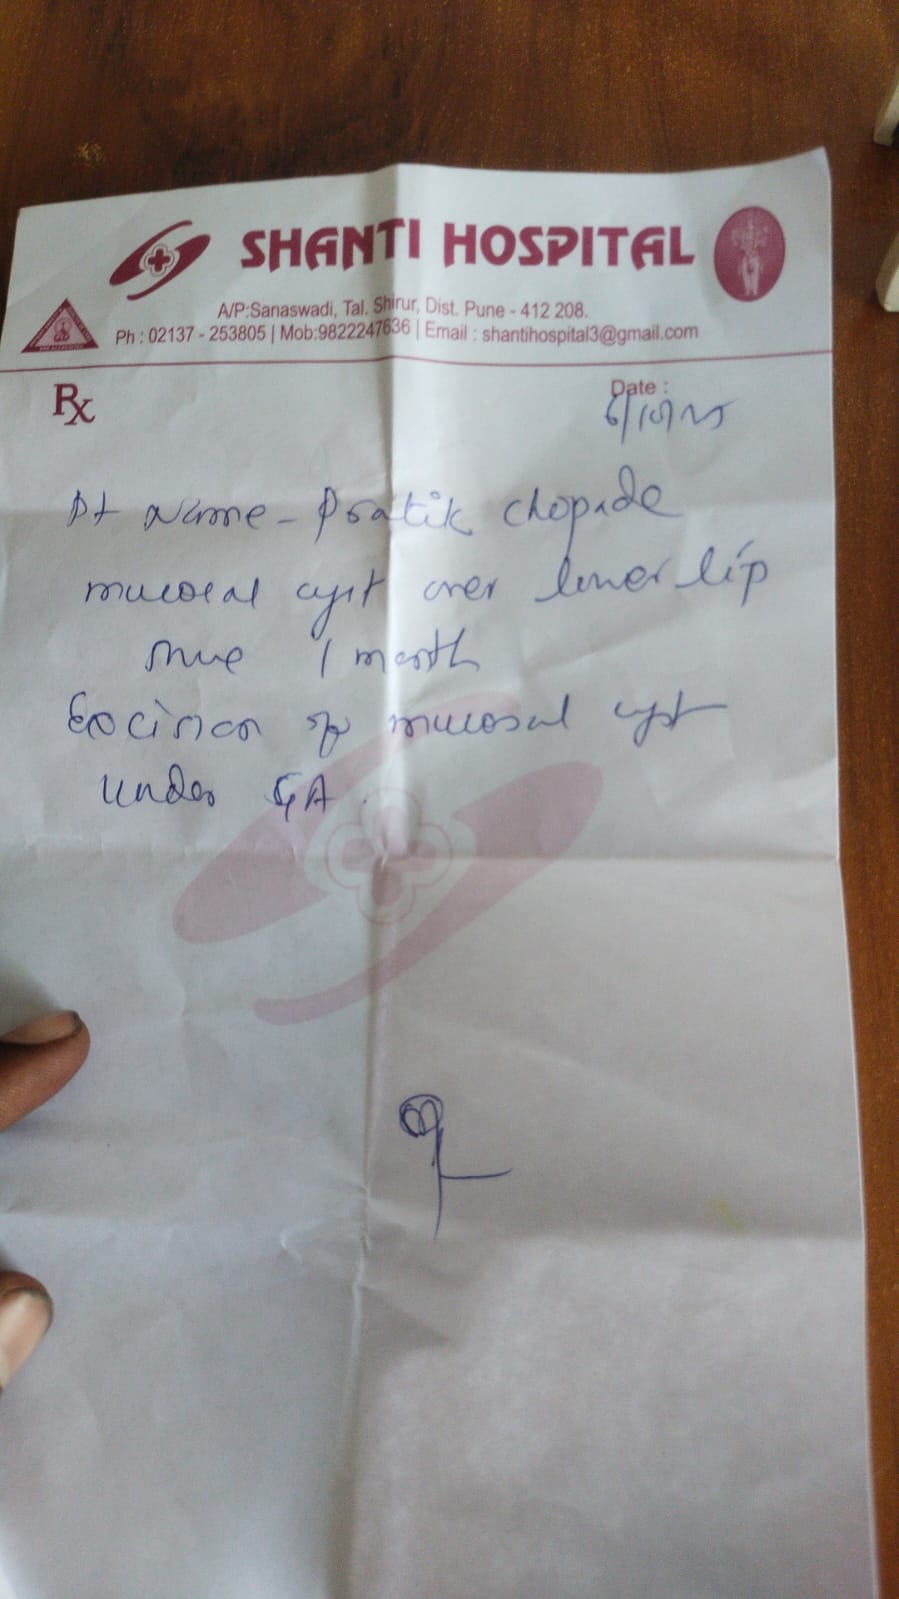 SHANTI HOSPITAL
A/P:Sanaswadi, Tal. Shirur, Dist. Pune - 412 208.
Ph : 02137 - 253805 | Mob:9822247636 | Email : shantihospital3@gmail.com
Rx
Date :
6/10/25
Pt Name - Pratik Chopade
mucosal cyst over lower lip
since 1 month
Excision of mucosal cyst
under GA.